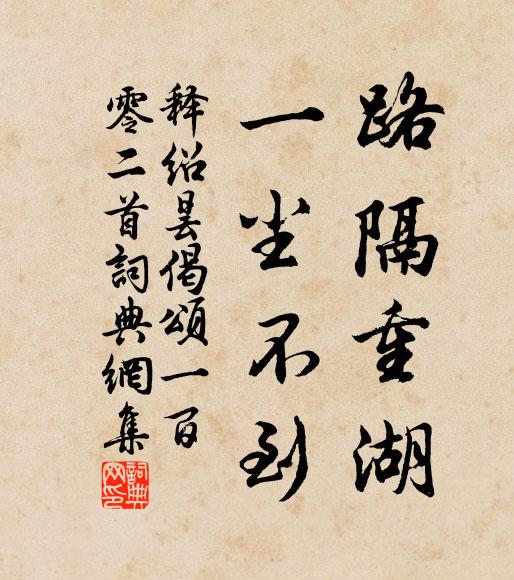 路隔重湖
一尘不到
释绍昙偈颂一百
零二首词典网集
词典网印